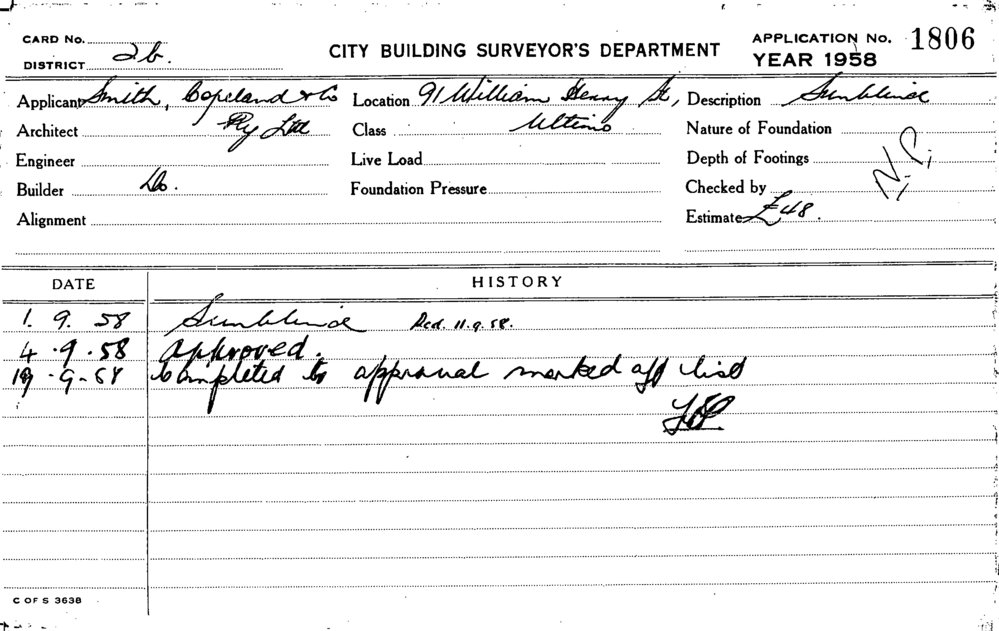 CARD No.
DISTRICT 2b.
CITY BUILDING SURVEYOR'S DEPARTMENT
APPLICATION No. 1806
YEAR 1958
Applicant Smith, Copeland & Co Location 91 William Henry St, Description Sunblind
Architect Pty Ltd Class Ultimo Nature of Foundation
Engineer Live Load Depth of Footings N.P.
Builder Do. Foundation Pressure Checked by
Alignment Estimate £48.
DATE HISTORY
1. 9. 58 Sunblind Rcd. 11.9.58.
4.9.58 approved.
9.58 Completed to approval marked off list
C OF S 3638